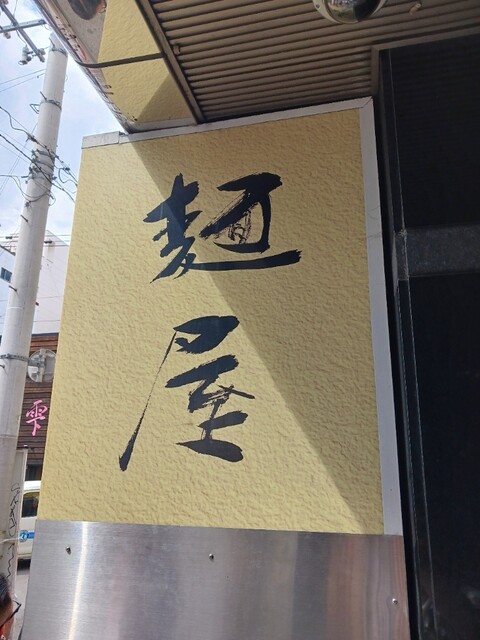 麺
屋
雫